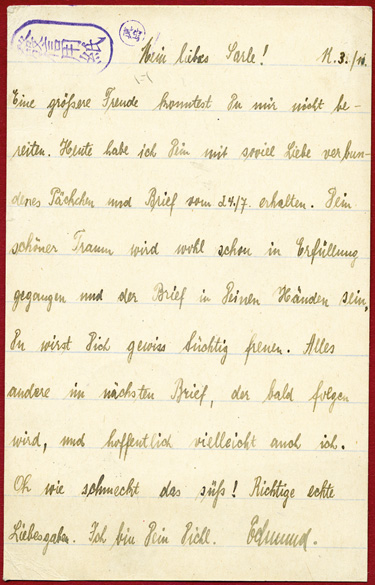 Mein liebes Sarle! 11.3./18.
Eine größere Freude konntest Du mir nicht be-
reiten. Heute habe ich Dein mit soviel Liebe verbun-
denes Päckchen und Brief vom 24./7. erhalten. Dein
schöner Traum wird wohl schon in Erfüllung
gegangen und der Brief in Deinen Händen sein,
Du wirst Dich gewiss tüchtig freuen. Alles
andere im nächsten Brief, der bald folgen
wird, und hoffentlich vielleicht auch ich.
Oh wie schmeckt das süß! Richtige echte
Liebesgaben. Ich bin Dein Dichl. Edmund.